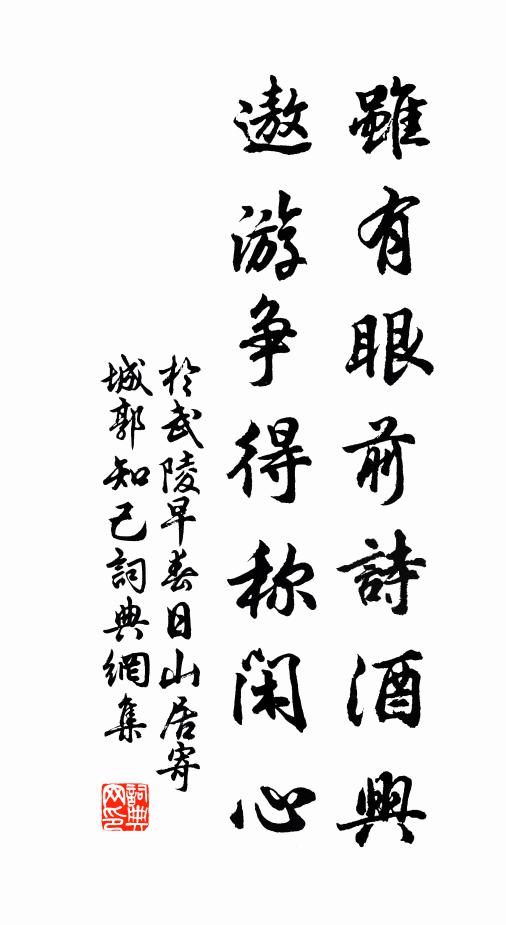 雖有眼前詩酒興
遨游争得称閑心
於武陵早春日山居寄
城郭知己詞典網集
詞典网印